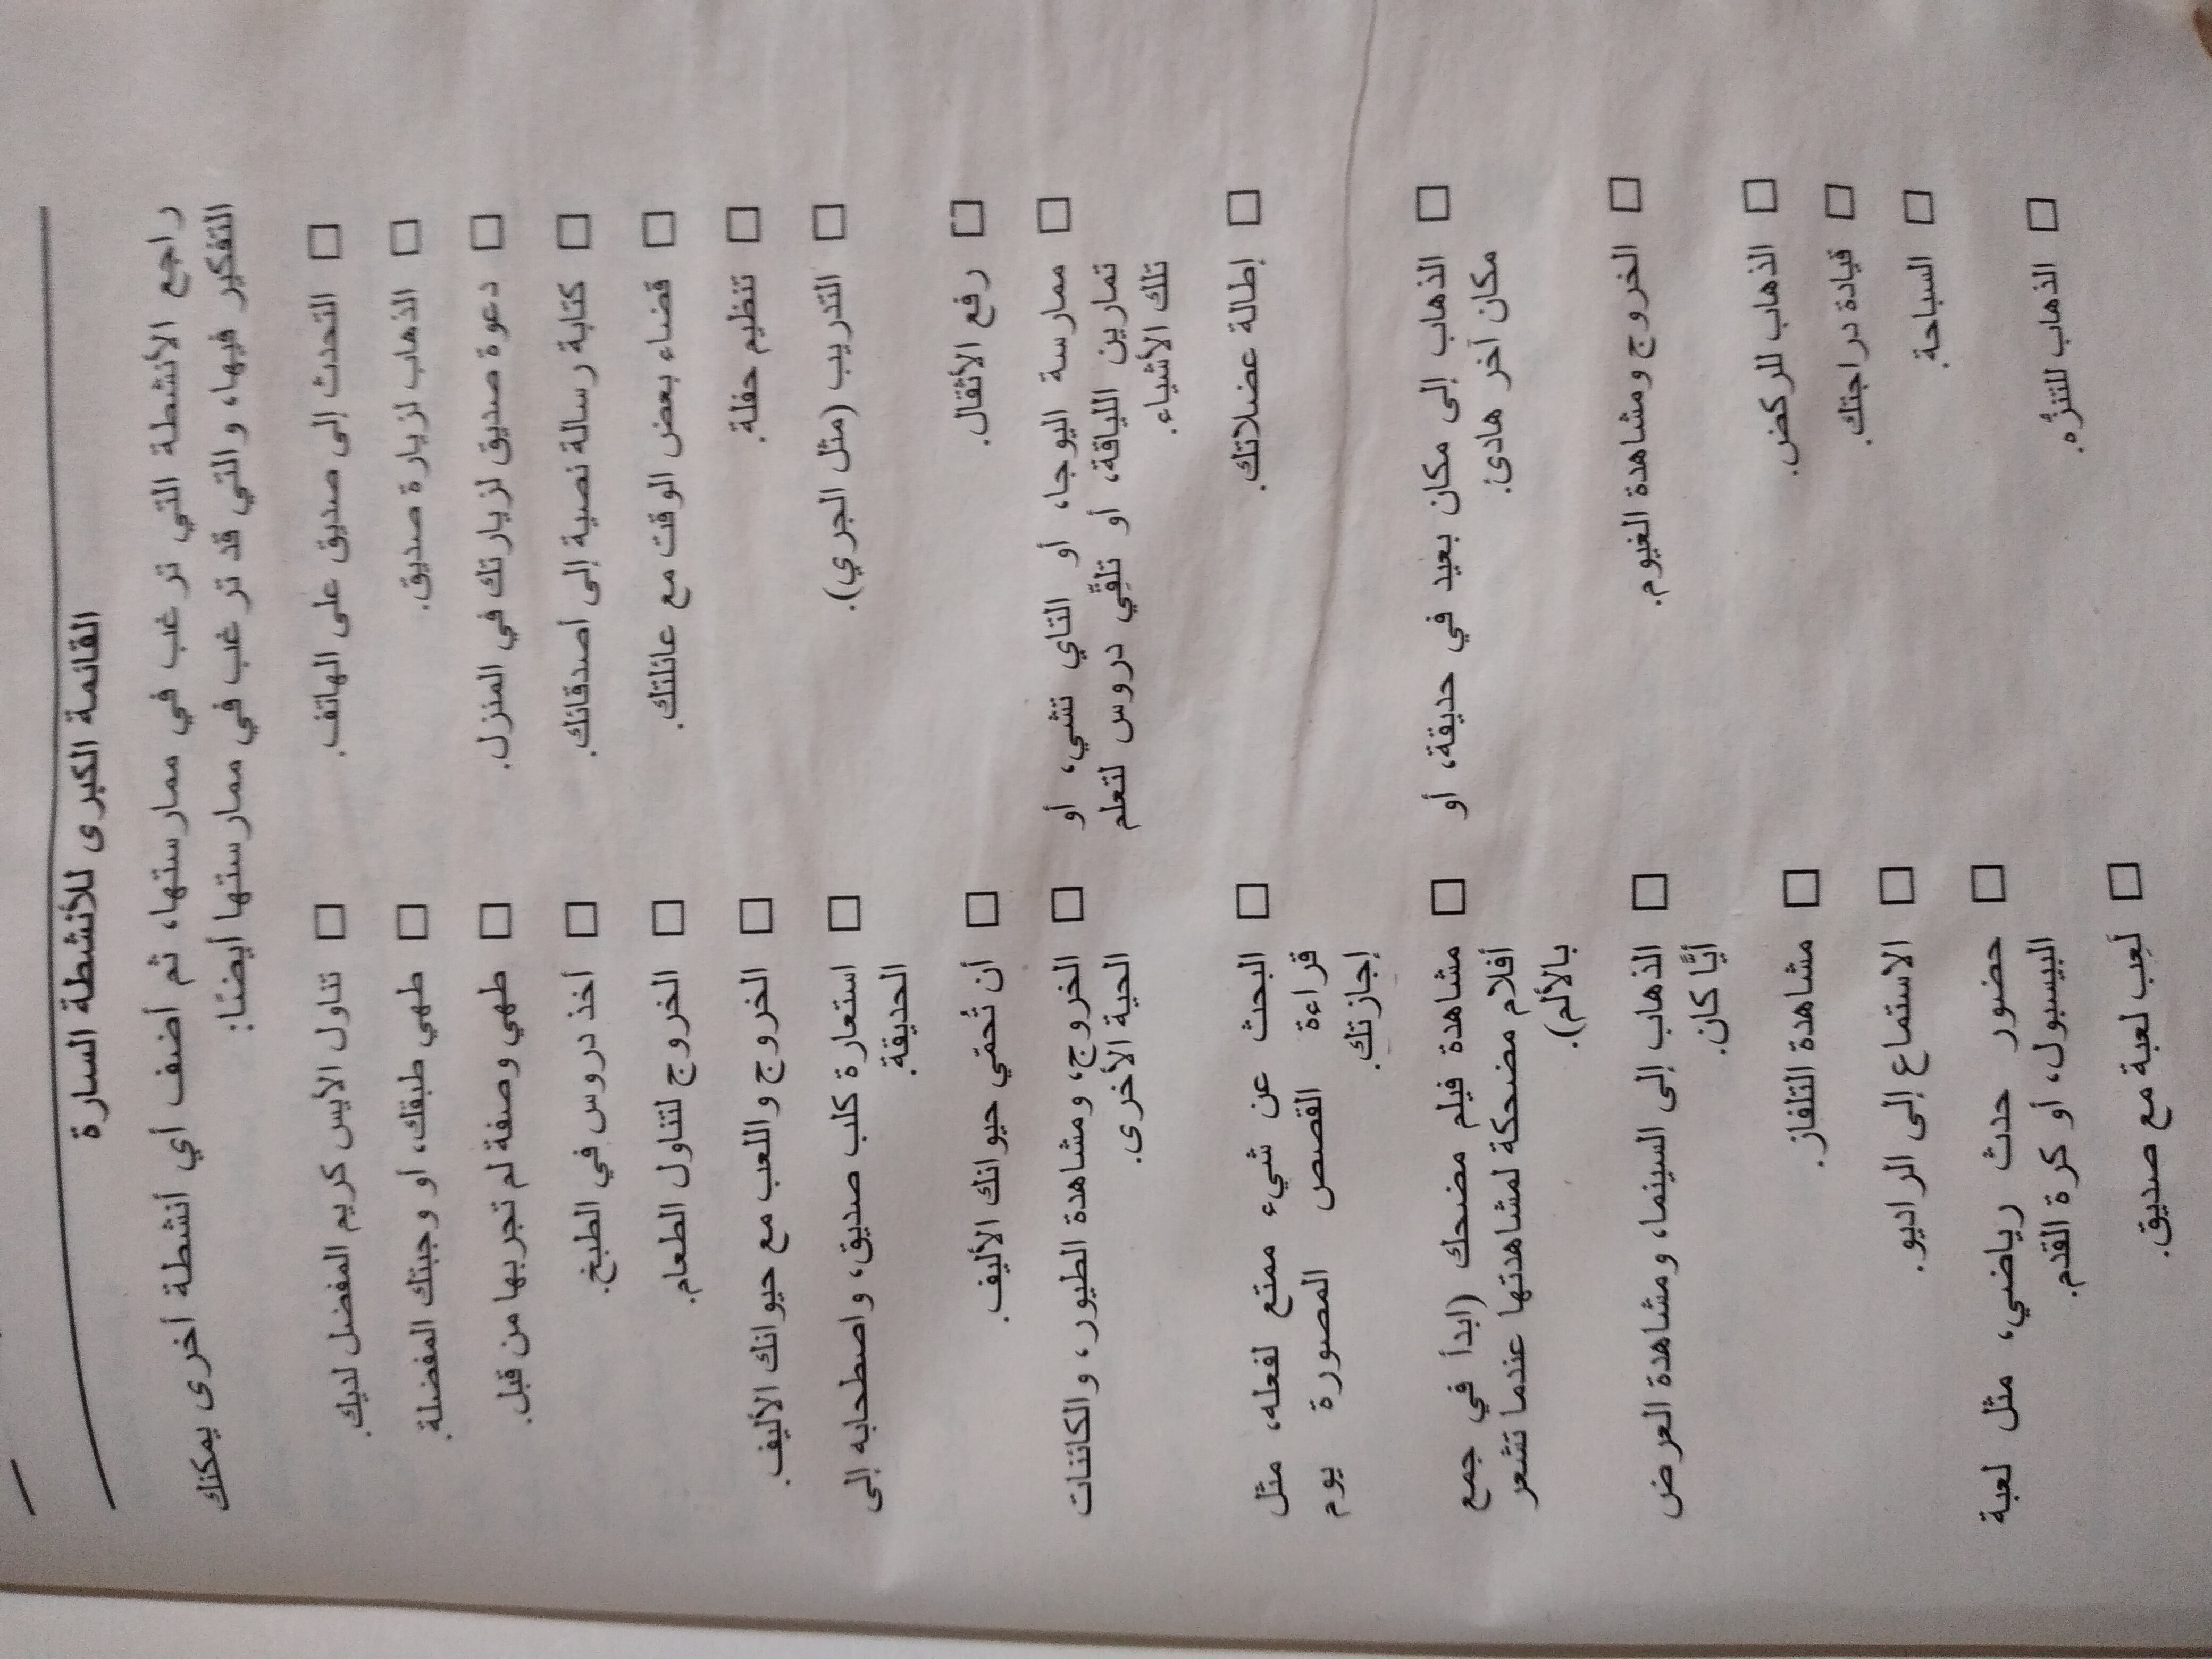 القائمة الكبرى للأنشطة السارة
راجع الأنشطة التي ترغب في ممارستها، ثم أضف أي أنشطة أخرى يمكنك
التفكير فيها، والتي قد ترغب في ممارستها أيضًا:
□ التحدث إلى صديق على الهاتف.
□ الذهاب لزيارة صديق.
□ دعوة صديق لزيارتك في المنزل.
□ كتابة رسالة نصية إلى أصدقائك.
□ قضاء بعض الوقت مع عائلتك.
□ تنظيم حفلة.
□ التدريب (مثل الجري).
□ رفع الأثقال.
□ ممارسة اليوجا، أو التاي تشي، أو
تمارين اللياقة، أو تلقِّي دروس لتعلم
تلك الأشياء.
□ إطالة عضلاتك.
□ الذهاب إلى مكان بعيد في حديقة، أو
مكان آخر هادئ.
□ الخروج ومشاهدة الغيوم.
□ الذهاب للركض.
□ قيادة دراجتك.
□ السباحة.
□ الذهاب للتنزُّه.
□ تناول الآيس كريم المفضل لديك.
□ طهي طبقك، أو وجبتك المفضلة.
□ طهي وصفة لم تجربها من قبل.
□ أخذ دروس في الطبخ.
□ الخروج لتناول الطعام.
□ الخروج واللعب مع حيوانك الأليف.
□ استعارة كلب صديق، واصطحابه إلى
الحديقة.
□ أن تُحمّي حيوانك الأليف.
□ الخروج، ومشاهدة الطيور، والكائنات
الحية الأخرى.
□ البحث عن شيء ممتع لفعله، مثل
قراءة القصص المصورة يوم
إجازتك.
□ مشاهدة فيلم مضحك (ابدأ في جمع
أفلام مضحكة لمشاهدتها عندما تشعر
بالألم).
□ الذهاب إلى السينما، ومشاهدة العرض
أيًّا كان.
□ مشاهدة التلفاز.
□ الاستماع إلى الراديو.
□ حضور حدث رياضي، مثل لعبة
البيسبول، أو كرة القدم.
□ لَعِب لعبة مع صديق.